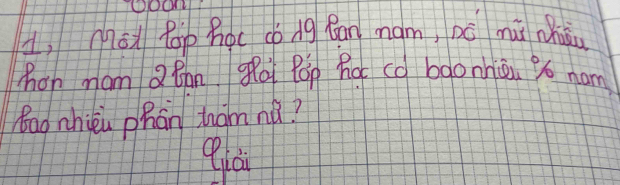 1, Một lớp học có 19 bạn nam, số nữ nhiều
hơn nam 2 bạn. Hỏi lớp học có bao nhiêu % nam,
bao nhiêu phần trăm nữ?
Giải